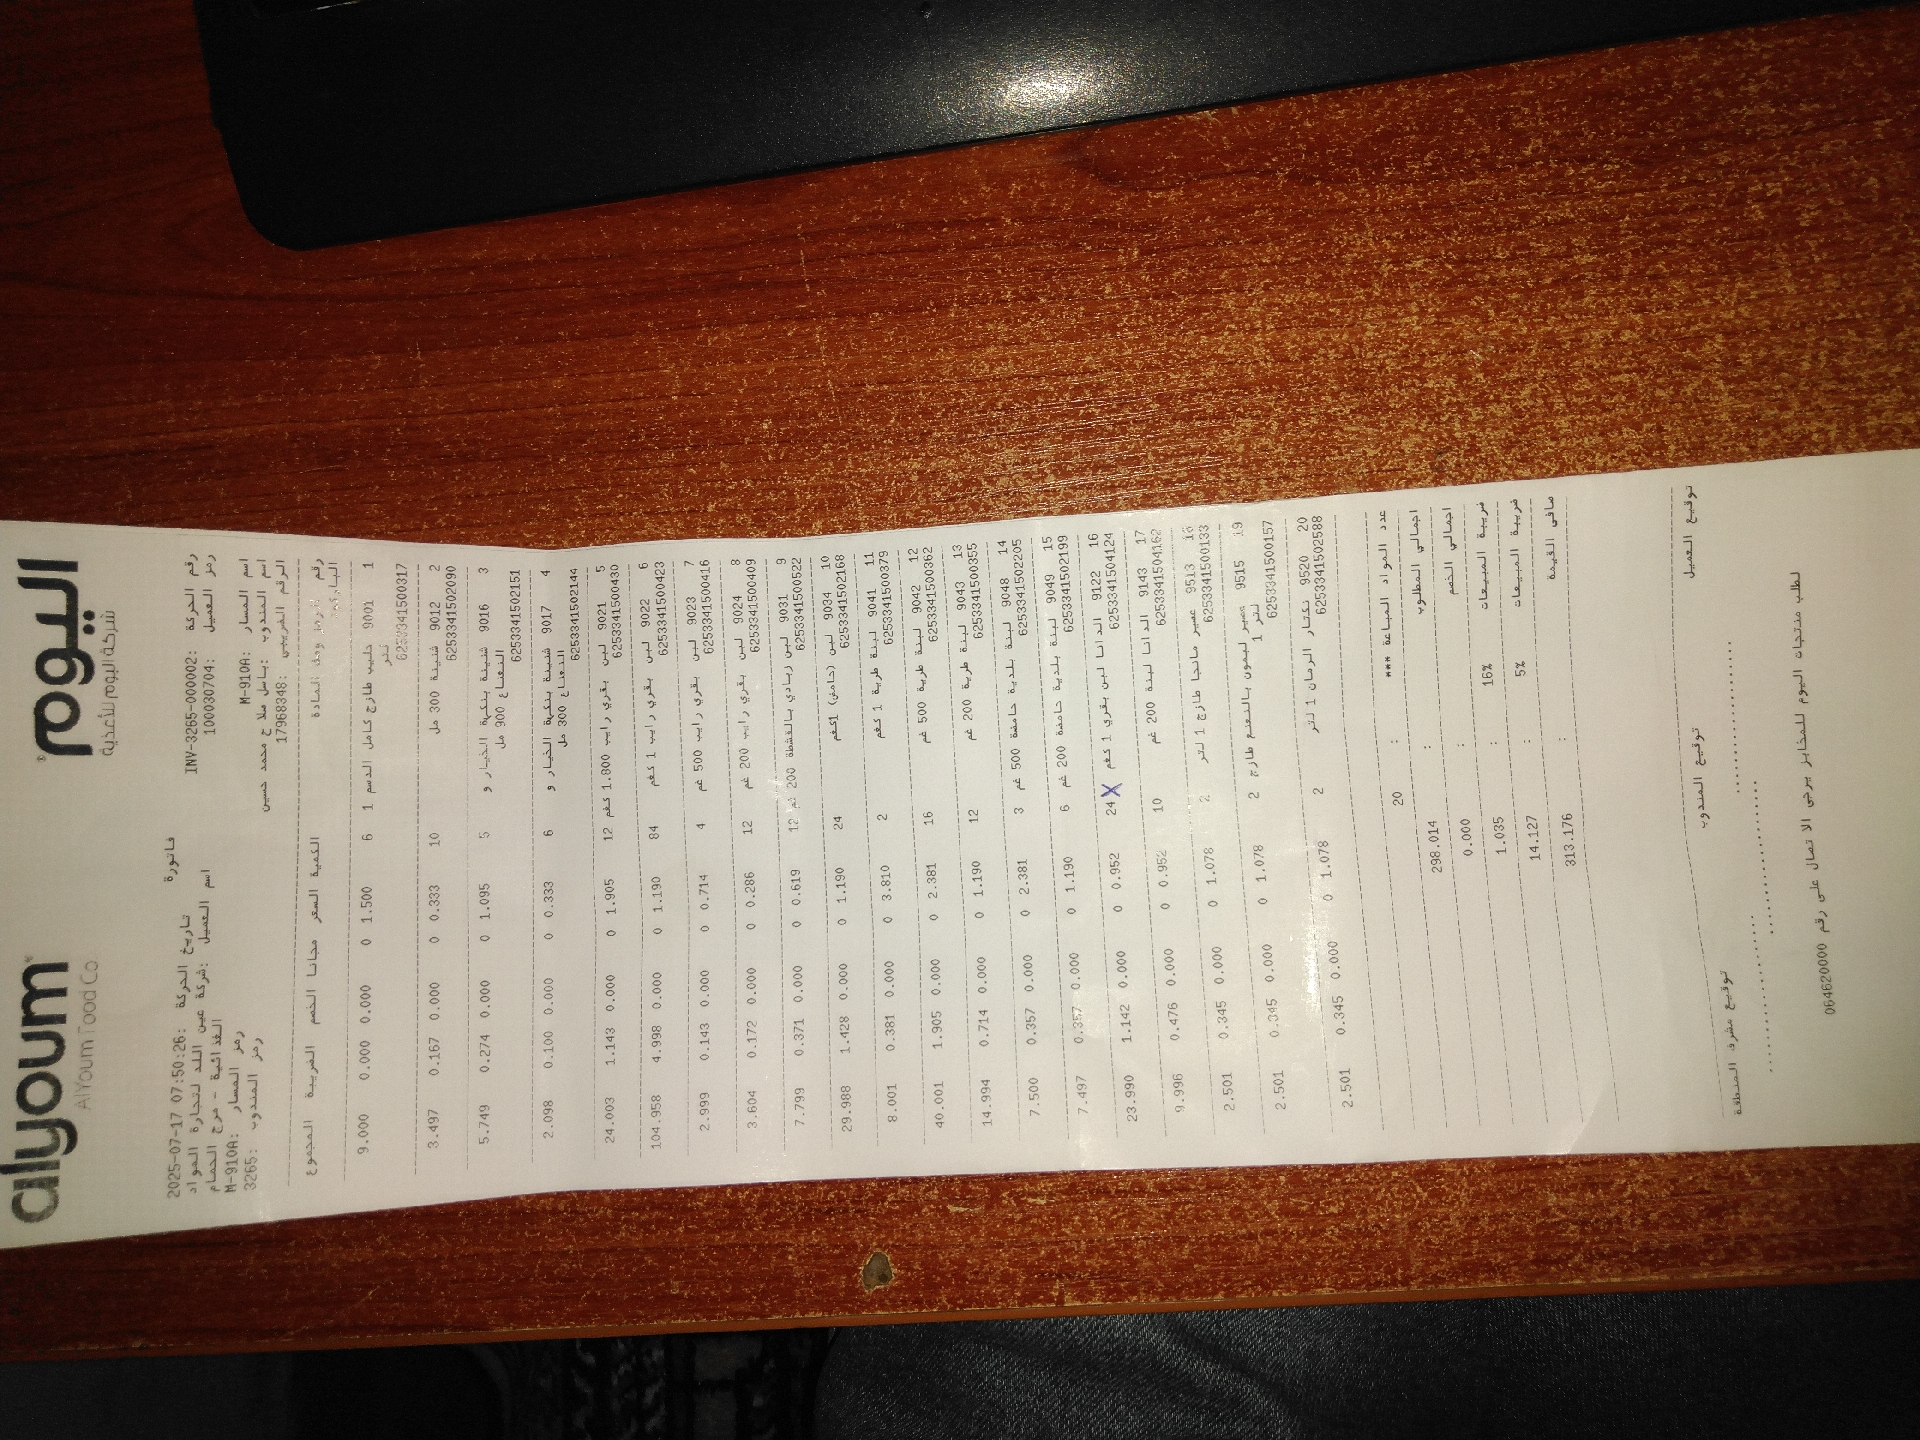 alyoum اليوم
AlYoum Food Co شركة اليوم للأغذية
فاتورة
رقم الحركة :INV-3265-000002 تاريخ الحركة :2025-07-17 07:50:26
رمز العميل :100030704 اسم العميل :شركة عين اللد لتجارة المواد الغذائية - مرج الحمام
اسم المسار :M-910A رمز المسار :M-910A
اسم المندوب :باسل ملاح محمد حسين رمز المندوب :3265
الرقم الضريبي :17968348
رقم المادة الكمية السعر مجانا الخصم الضريبة المجموع
الباركود
1 9001 حليب طازج كامل الدسم 1 لتر 6 1.500 0 0.000 0.000 9.000
6253341500317
2 9012 شنينة 300 مل 10 0.333 0 0.000 0.167 3.497
6253341502090
3 9016 شنينة بنكهة الخيار و النعناع 900 مل 5 1.095 0 0.000 0.274 5.749
6253341502151
4 9017 شنينة بنكهة الخيار و النعناع 300 مل 6 0.333 0 0.000 0.100 2.098
6253341502144
5 9021 لبن بقري رايب 1.800 كغم 12 1.905 0 0.000 1.143 24.003
6253341500430
6 9022 لبن بقري رايب 1 كغم 84 1.190 0 0.000 4.998 104.958
6253341500423
7 9023 لبن بقري رايب 500 غم 4 0.714 0 0.000 0.143 2.999
6253341500416
8 9024 لبن بقري رايب 200 غم 12 0.286 0 0.000 0.172 3.604
6253341500409
9 9031 لبن زبادي بالقشطة 200 غم 12 0.619 0 0.000 0.371 7.799
6253341500522
10 9034 لبن (حامض) 1كغم 24 1.190 0 0.000 1.428 29.988
6253341502168
11 9041 لبنة طرية 1 كغم 2 3.810 0 0.000 0.381 8.001
6253341500379
12 9042 لبنة طرية 500 غم 16 2.381 0 0.000 1.905 40.001
6253341500362
13 9043 لبنة طرية 200 غم 12 1.190 0 0.000 0.714 14.994
6253341500355
14 9048 لبنة بلدية حامضة 500 غم 3 2.381 0 0.000 0.357 7.500
6253341502205
15 9049 لبنة بلدية حامضة 200 غم 6 1.190 0 0.000 0.357 7.497
6253341502199
16 9122 الدانا لبن بقري 1 كغم X 24 0.952 0 0.000 1.142 23.990
6253341504124
17 9143 الدانا لبنة 200 غم 10 0.952 0 0.000 0.476 9.996
6253341504162
18 9513 عصير مانجا طازج 1 لتر 2 1.078 0 0.000 0.345 2.501
6253341500133
19 9515 عصير ليمون بالنعنع طازج 1 لتر 2 1.078 0 0.000 0.345 2.501
6253341500157
20 9520 نكتار الرمان 1 لتر 2 1.078 0 0.000 0.345 2.501
6253341502588
عدد المواد المباعة *** : 20
اجمالي المطلوب : 298.014
اجمالي الخصم : 0.000
ضريبة المبيعات 16% : 1.035
ضريبة المبيعات 5% : 14.127
صافي القيمة : 313.176
توقيع العميل توقيع المندوب توقيع مشرف المنطقة
لطلب منتجات اليوم للمخابز يرجى الاتصال على رقم 064620000